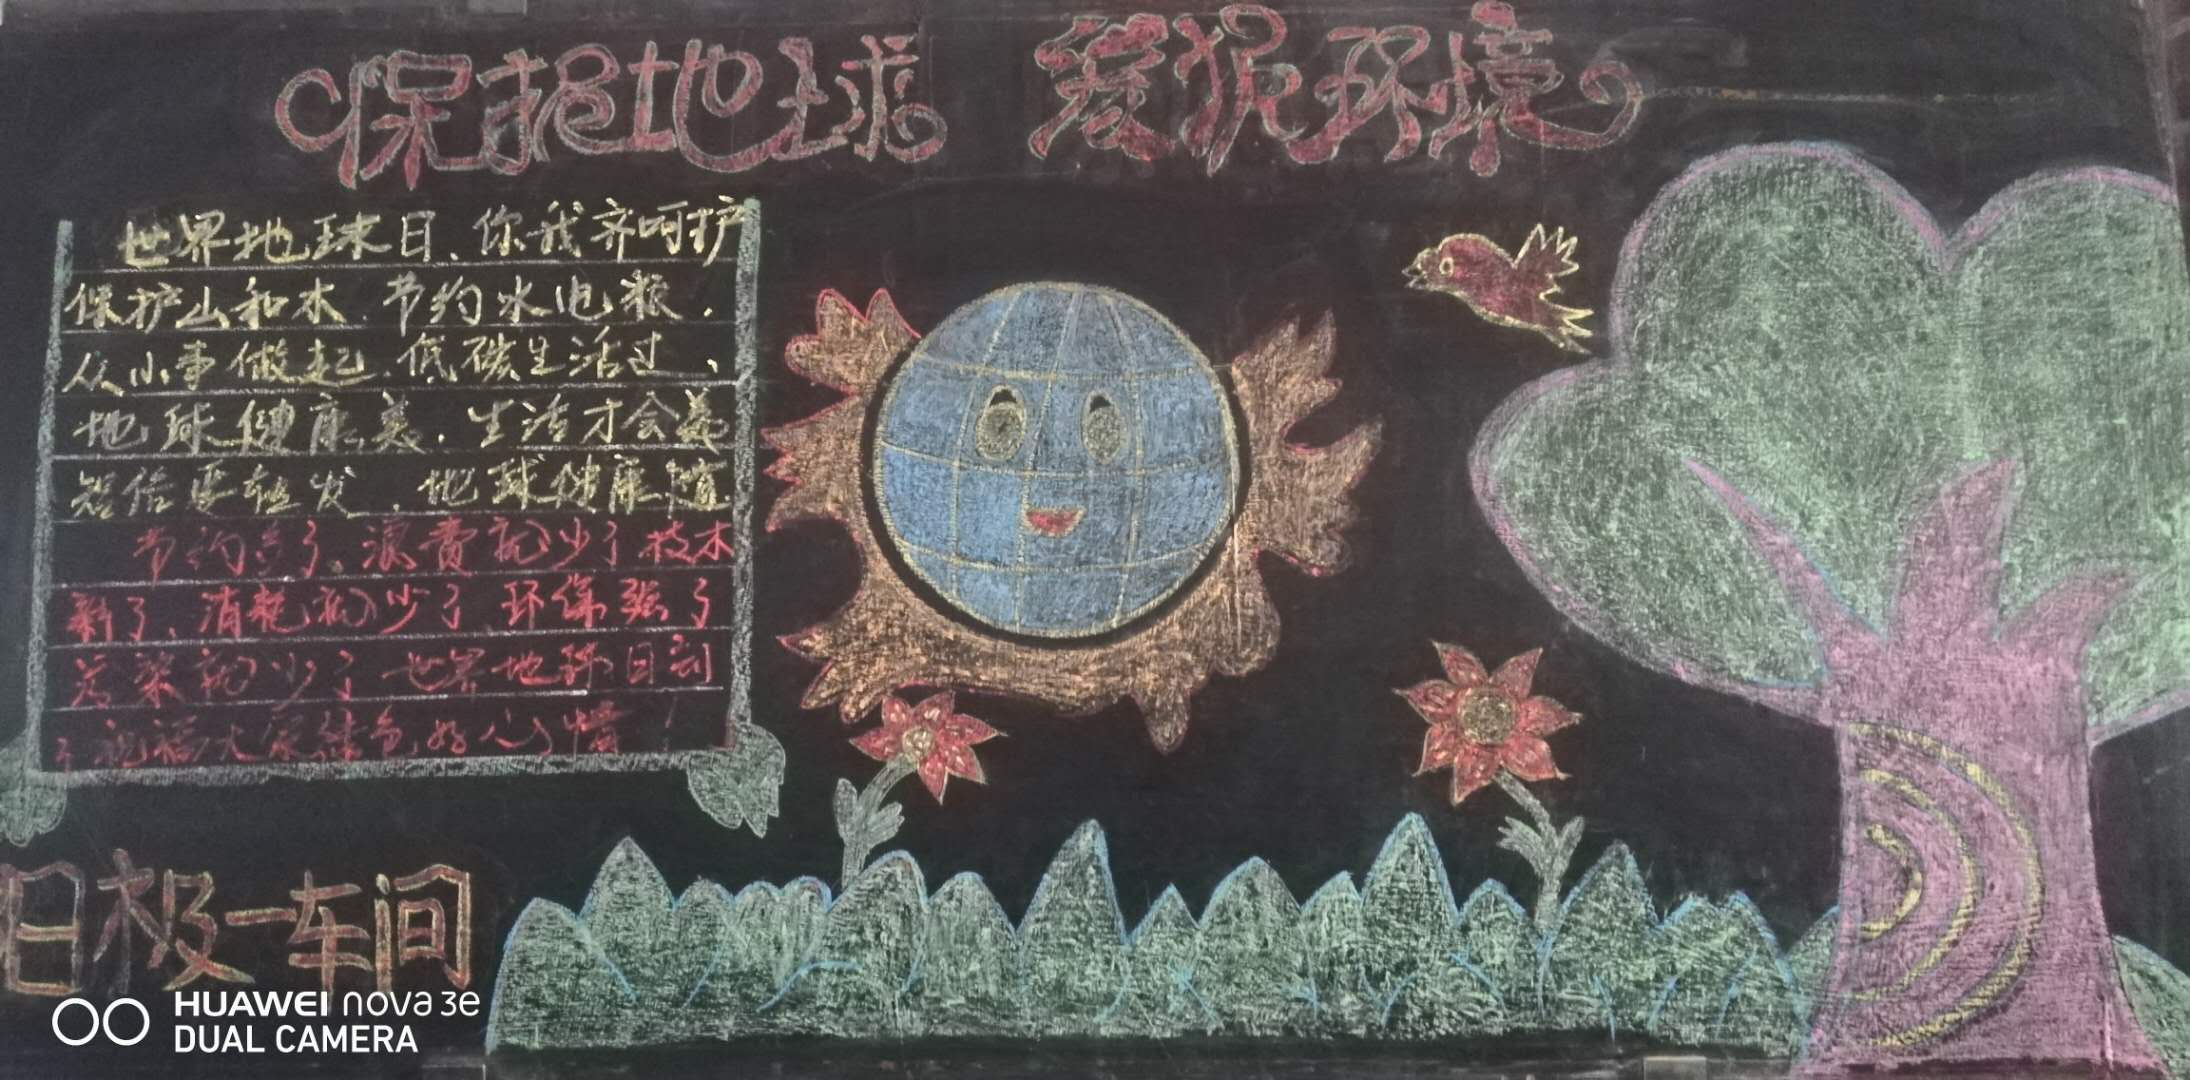 保护地球 爱护环境
世界地球日、你我齐呵护
保护山和木、节约水电粮，
从小事做起、低碳生活过、
地球健康美，生活才会美
短信要转发，地球健康随
节约多了、浪费就少了技术
新了、消耗就少了环保强了
污染就少了世界地球日到
了祝福大家绿色好心情！
阳极一车间
HUAWEI nova 3e
DUAL CAMERA